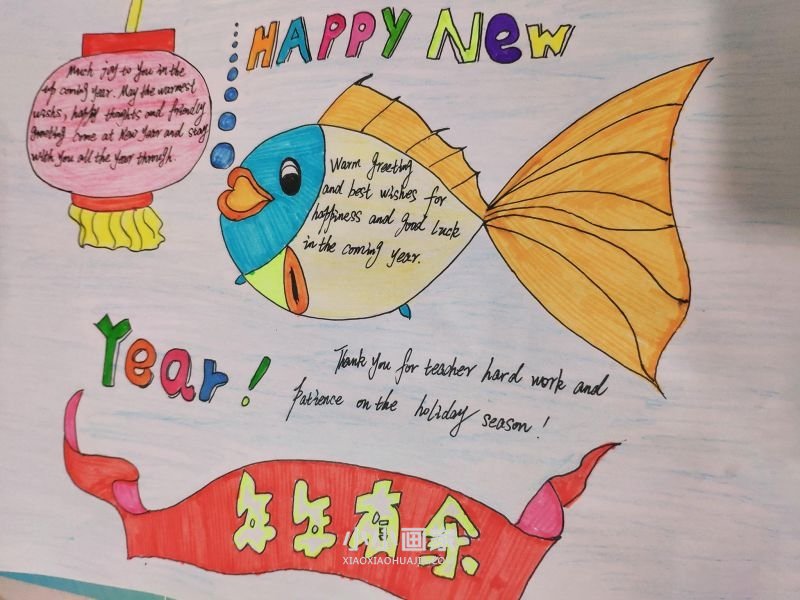 HAPPY NEW
Much joy to you in the
up coming year. May the warmest
wishes, happy thoughts and friendly
greeting come at New Year and stay
with you all the year through.
Warm greeting
and best wishes for
happiness and good luck
in the coming year.
Year!
Thank you for teacher hard work and
Patience on the holiday season!
年年有余
小小画家
XIAOXIAOHUAJIA.CO